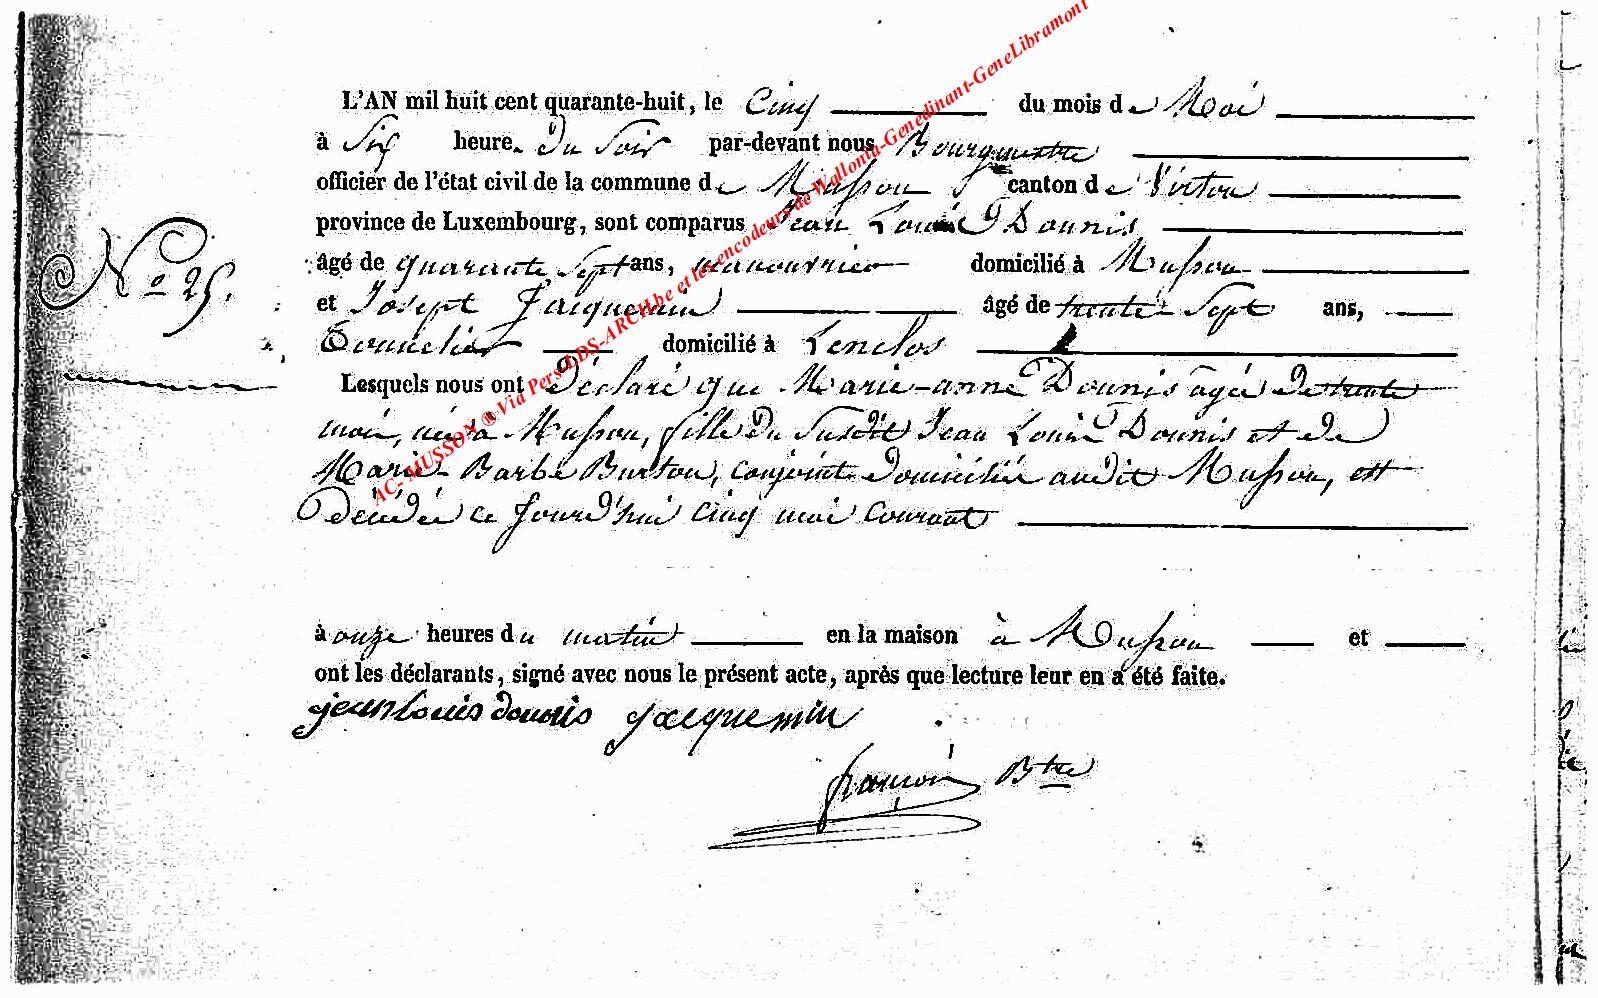 L'AN mil huit cent quarante-huit, le Cinq du mois de Mai
à Six heure. du Soir par-devant nous Bourgmestre
officier de l'état civil de la commune de Musson canton de Virton
province de Luxembourg, sont comparus Jean Louis Dounis
N° 25.
âgé de quarante Sept ans, manouvrier domicilié à Musson
et Josept Jacquemin âgé de trente Sept ans,
Tonnelier domicilié à Lenclos
Lesquels nous ont Déclaré que Marie-anne Dounis âgée de trente
mois, née à Musson, fille du Susdit Jean Louis Dounis et de
Marie-Barbe Burton, conjoints domiciliés audit Musson, est
Décédée ce Jourd'hui cinq mai courant
à onze heures du matin en la maison à Musson et
ont les déclarants, signé avec nous le présent acte, après que lecture leur en a été faite.
jean louis dounis jacquemin
françois Btre
AC- MUSSON ® Via Pers-LDS-ARCH.be et les encodeurs de Wallonia-Genedinant-GeneLibramont